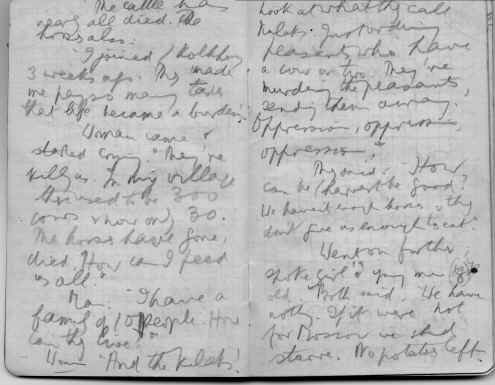 The cattle has
nearly all died. The
horses also.
"I joined / Kolkhoz
3 weeks ago. They made
me pay so many taxes
that life became a burden."
Woman came &
started crying. "They're
killing us. In my village
there used to be 300
cows & now only 30.
The horses have gone,
died. How can I feed
us all."
Man. "I have a
family of 10 people. How
can they live?"
Woman "And the kulaks!
Look at what they call
kulaks. Just ordinary
peasants who have
a cow or two. They're
murdering the peasants,
sending them away.
Oppression, oppression,
oppression."
They said. "How
can the harvest be good?
We haven't enough horses & they
don't give us enough to eat."
Went on further,
spoke girl & young man
old. Both said. We have
nothg. If it were not
for Moscow we shd
starve. No potatoes left.